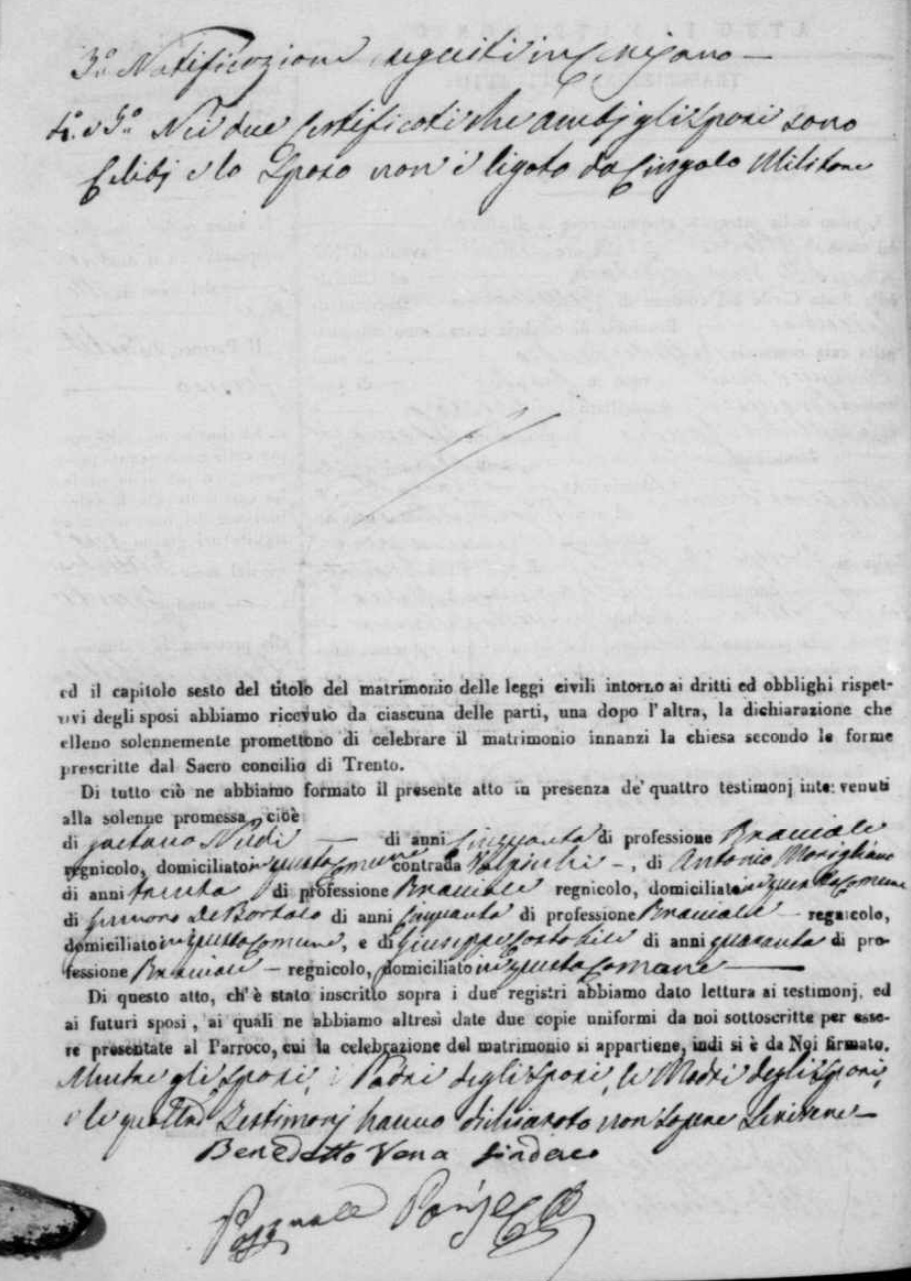 3.º Notificazione seguiti in Cerisano —
4.º e 5.º Nei due Certificati che ambj gli Sposi sono
Celibj e lo Sposo non è ligato da Cingolo Militare
ed il capitolo sesto del titolo del matrimonio delle leggi civili intorno ai dritti ed obblighi rispet-
tivi degli sposi abbiamo ricevuto da ciascuna delle parti, una dopo l'altra, la dichiarazione che
elleno solennemente promettono di celebrare il matrimonio innanzi la chiesa secondo le forme
prescritte dal Sacro concilio di Trento.
Di tutto ciò ne abbiamo formato il presente atto in presenza de' quattro testimonj intervenuti
alla solenne promessa, cioè
di Gaetano — di anni Cinquanta di professione Bracciale
regnicolo, domiciliato in questa Comune contrada —, di Antonio Morigliano
di anni trenta di professione Bracciale regnicolo, domiciliato in questa Comune
di De Bortolo di anni Cinquanta di professione Bracciale — regnicolo,
domiciliato in questa Comune, e di Giuseppe di anni quaranta di pro-
fessione Bracciale — regnicolo, domiciliato in questa Comune —
Di questo atto, ch'è stato inscritto sopra i due registri abbiamo dato lettura ai testimonj, ed
ai futuri sposi, ai quali ne abbiamo altresì date due copie uniformi da noi sottoscritte per esse-
re presentate al Parroco, cui la celebrazione del matrimonio si appartiene, indi si è da Noi firmato.
Mentre gli Sposi, i Padri degli Sposi, le Madri degli Sposi,
e le quattro Testimonj hanno dichiarato non sapere scrivere —
Benedetto Vena Sindaco
Pasquale